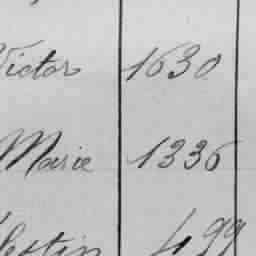 Victor 1630
Marie 1336
499